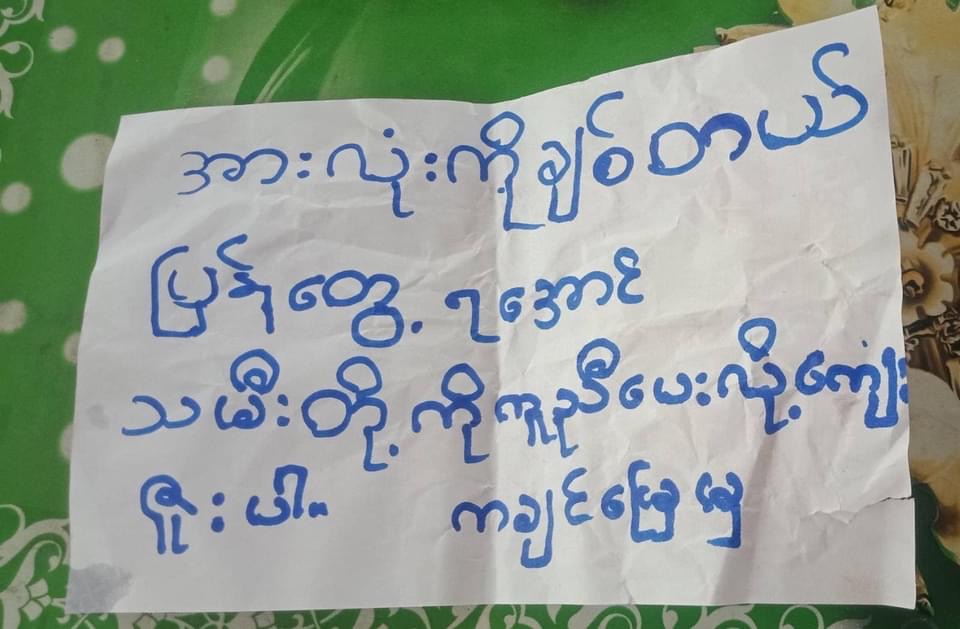 အားလုံးကိုချစ်တယ်
ပြန်တွေ့ ရအောင်
သမီးတို့ ကို ကူညီပေးလို့ ကျေး
ဇူးပါ။ ကချင်မြေမှ